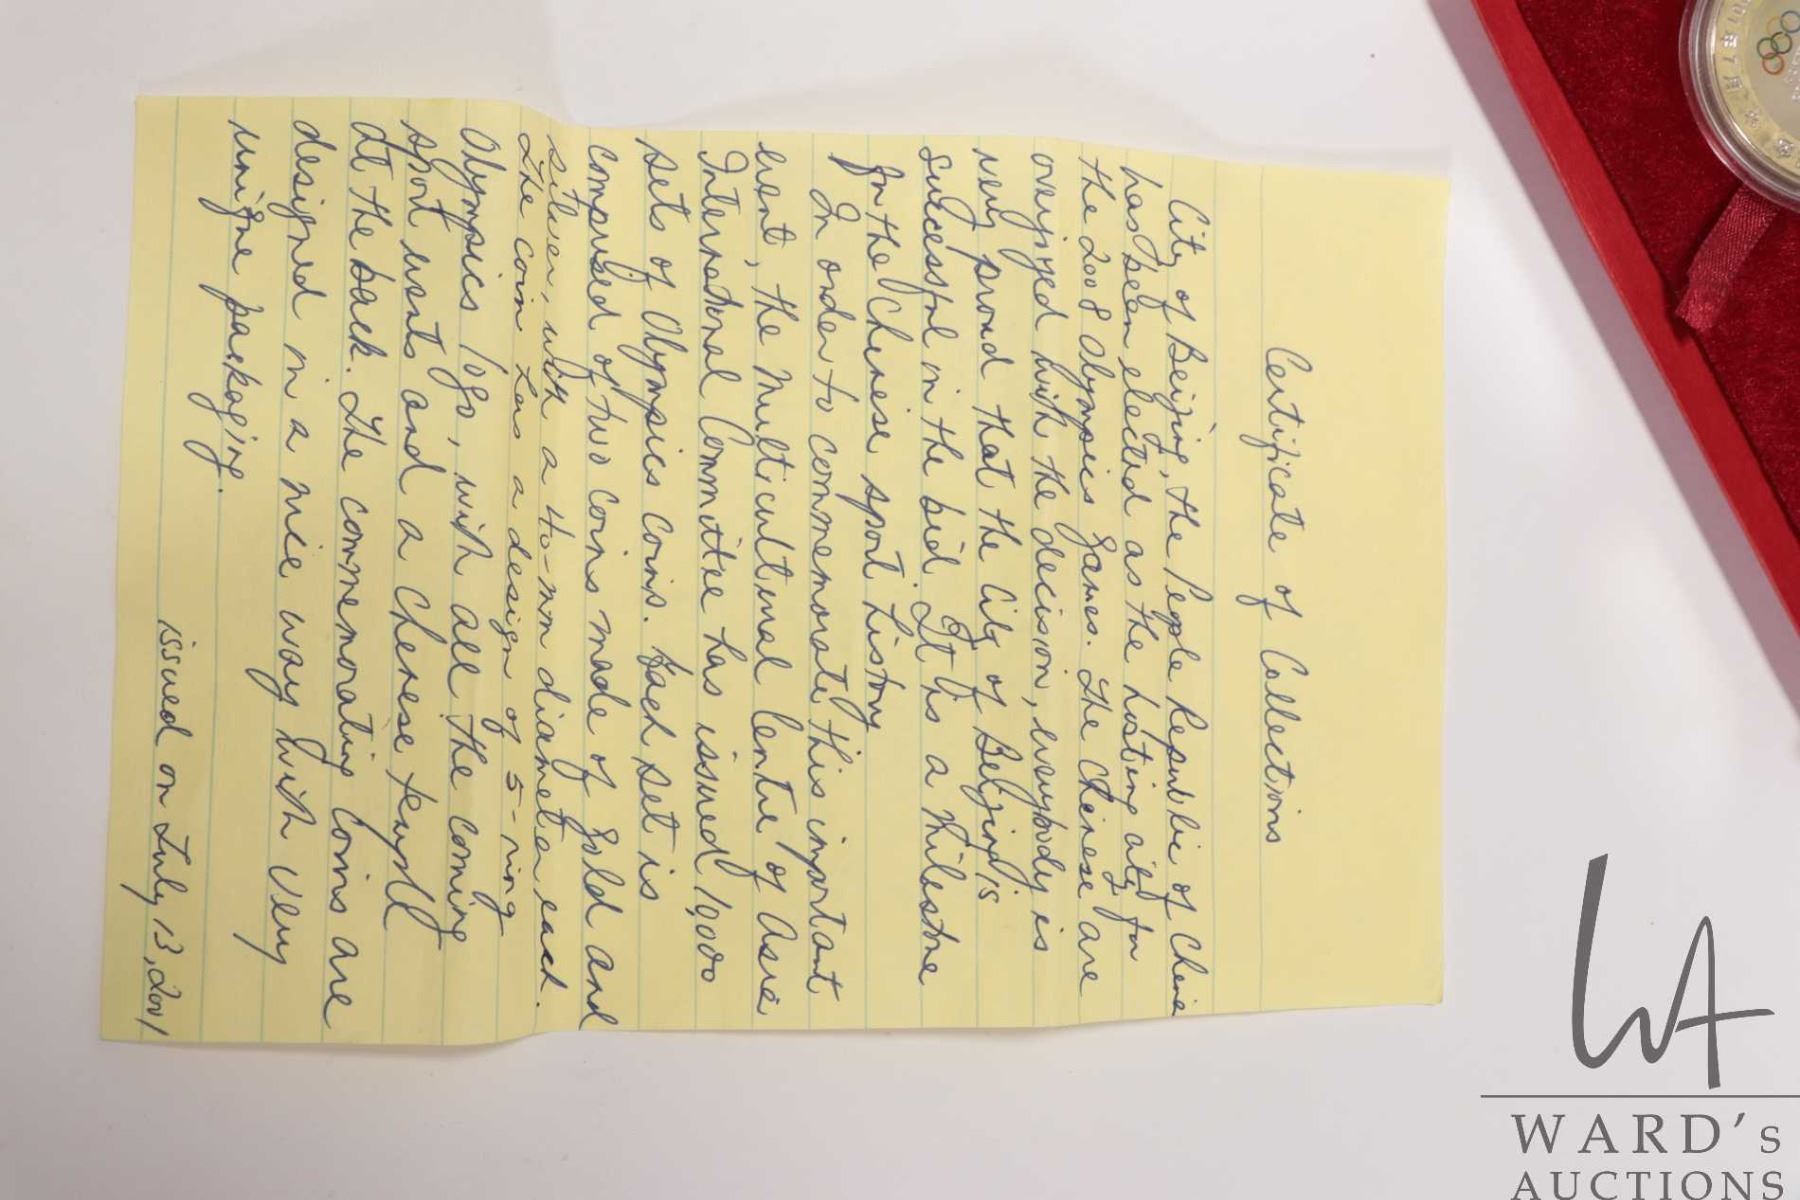 Certificate of Collections
City of Beijing, the People Republic of China
has been elected as the hosting city for
the 2008 Olympics Games. The Chinese are
overjyed with the decision, everybody is
very proud that the City of Beijing is
successful in the bid. It is a Milestone
for the Chinese sport history
In order to commemorate this important
event, the Multicultural Centre of Asia
International Committee has issued 10,000
sets of Olympics coins. Each set is
comprised of two coins made of gold and
silver, with a 40-mm diameter each.
The coin has a design of 5-ring
Olympics logo, with all the coming
sport events and a Chinese temple
at the back. The commemorative Coins are
designed in a nice way with very
unique packaging.
issued on July 13, 2001
WA
WARD's
AUCTIONS